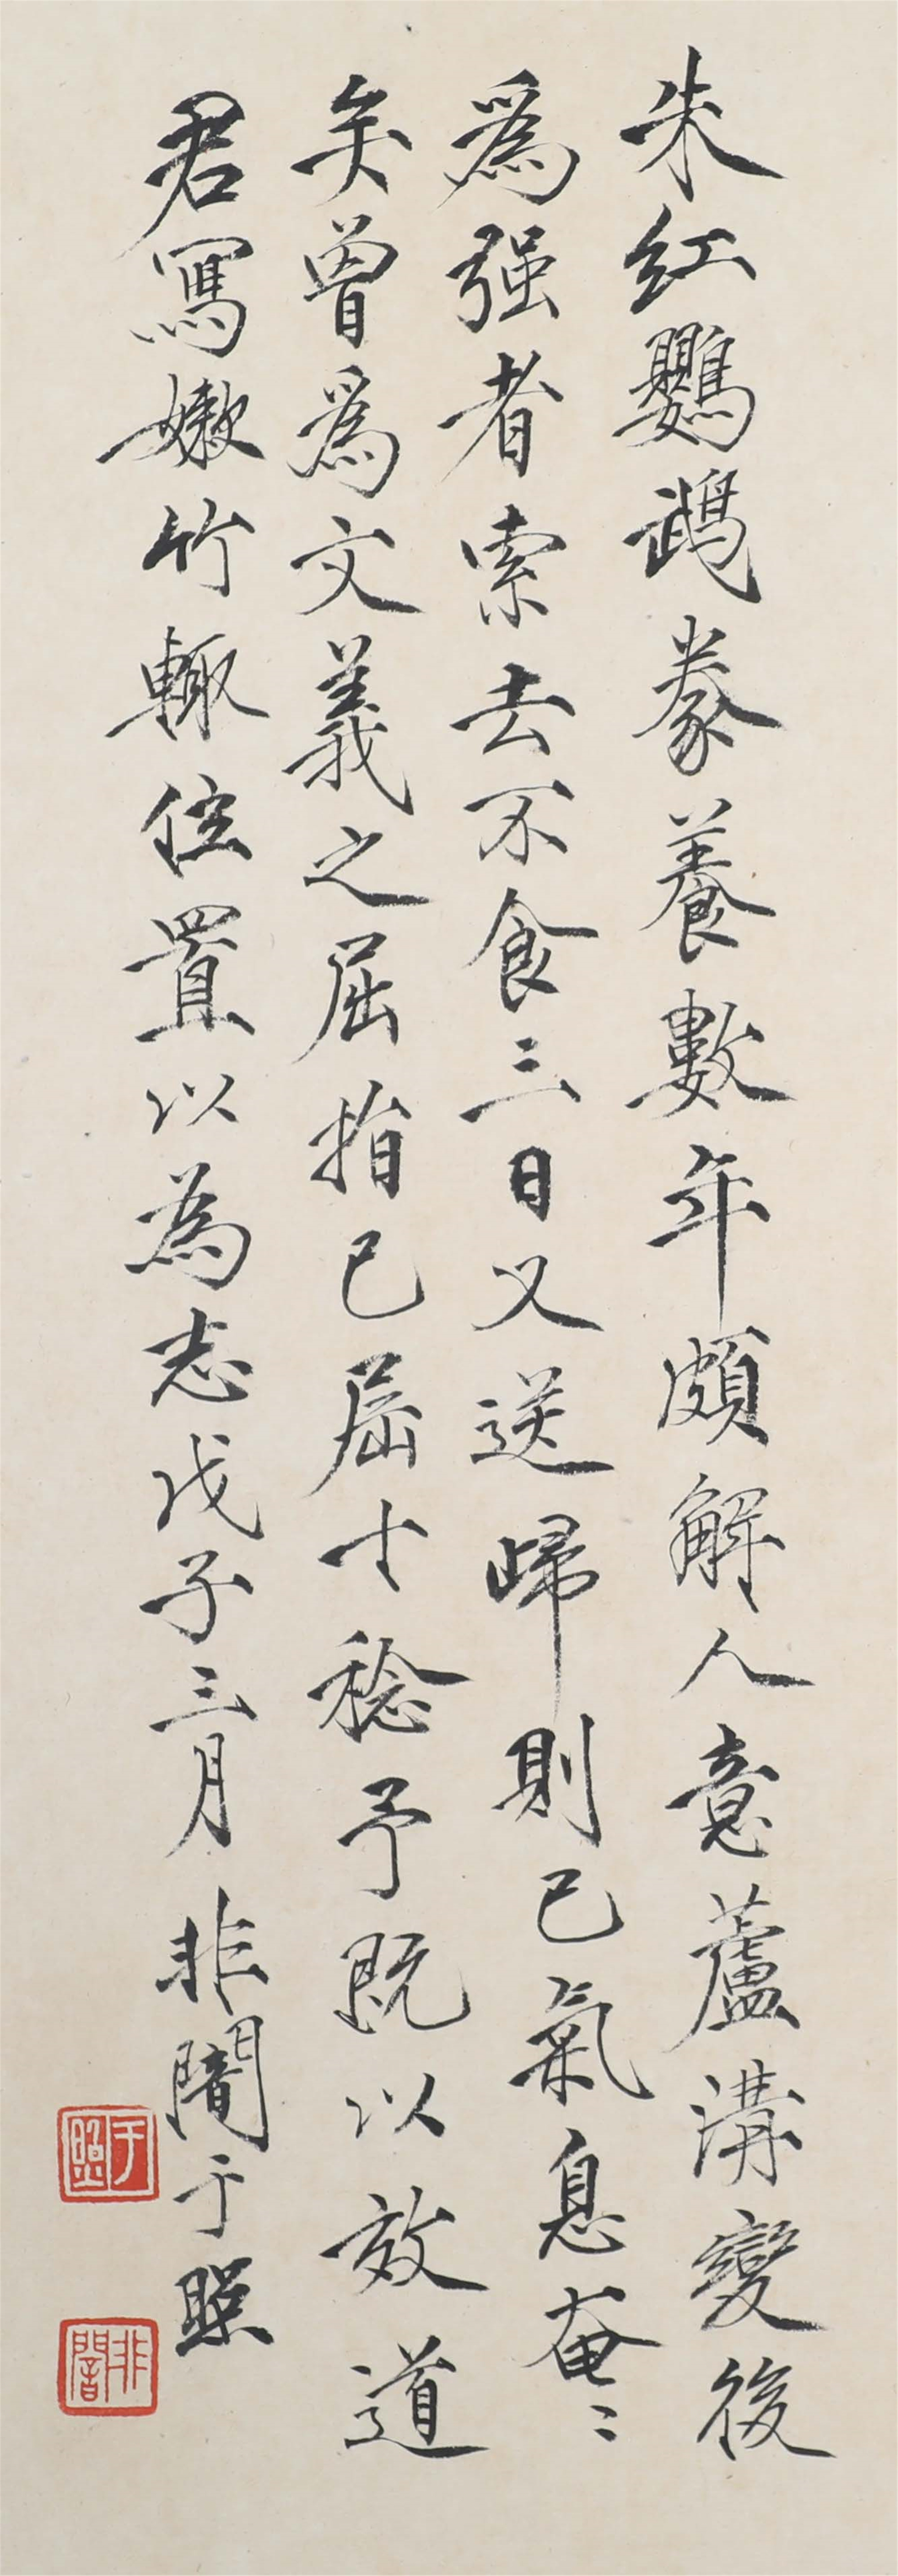 朱红鸚鵡豢養數年頗解人意蘆溝變後
為强者索去不食三日又送歸則已氣息奄〻
矣曾為文義之屈指已屆十稔予既以效道
君寫嫩竹輙位置以為志戊子三月非闇于照
于照
非闇